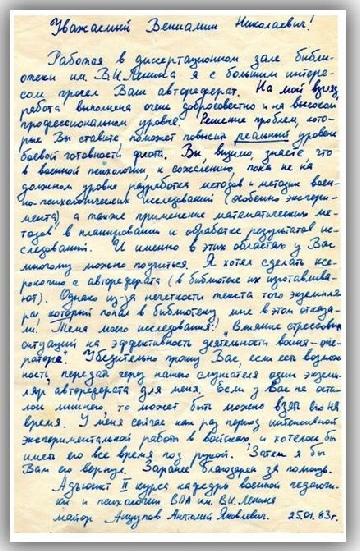 Уважаемый Вениамин Николаевич!
Работая в диссертационном зале библи-
отеки им. В.И.Ленина я с большим интере-
сом прочел Ваш автореферат. На мой взгляд
работа выполнена очень добросовестно и на высоком
профессиональном уровне. Решение проблем, кото-
рые Вы ставите поможет повысить реальный уровень
боевой готовности флота. Вы, видимо, знаете что
в военной психологии, к сожалению, пока не на
должном уровне разработка методов и методик воен-
но-психологических исследований (особенно экспери-
мента), а также применение математических ме-
тодов в планировании и обработке результатов ис-
следований. И именно в этих областях у Вас
многому можно поучиться. Я хотел сделать ксе-
рокопию с автореферата (в библиотеке их изготавлива-
ют). Однако из-за нечеткости текста того экземпля-
ра, который попал в библиотеку, мне в этом отказа-
ли. Тема моего исследования: "Влияние стрессовых
ситуаций на эффективность деятельности воина-опе-
ратора". Убедительно прошу Вас, если есть возмож-
ность, передать через нашего слушателя один экзем-
пляр автореферата для меня. Если у Вас не оста-
лось лишнего, то может быть можно взять его на
время. У меня сейчас как раз период интенсивной
экспериментальной работы в войсках и хотелось бы
иметь его все время под рукой. Затем я бы
Вам его вернул. Заранее благодарен за помощь.
Адъюнкт II курса кафедры военной педагоги-
ки и психологии ВПА им. В.И. Ленина
майор Анатолий Яковлевич. 25.01.83г.